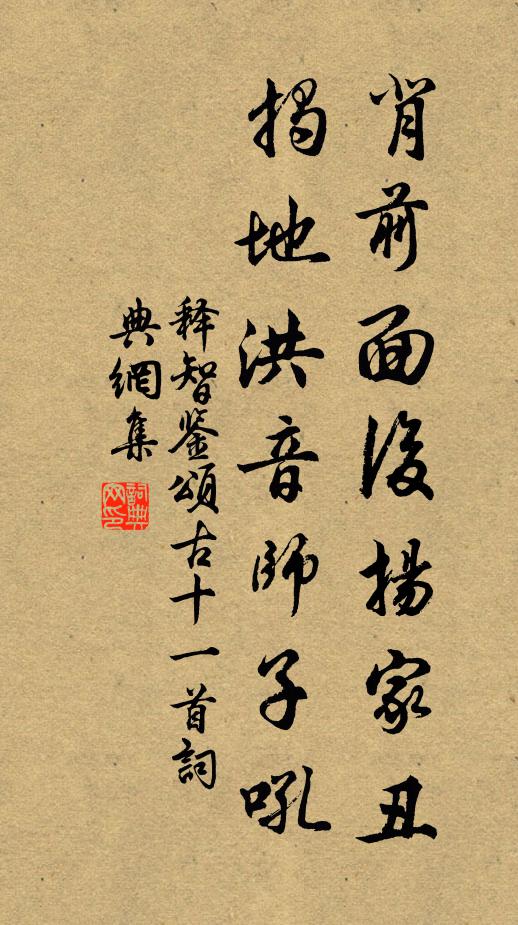 背前面後揚家丑
揭地洪音師子吼
释智鉴頌古十一首詞
典網集
詞典
网印